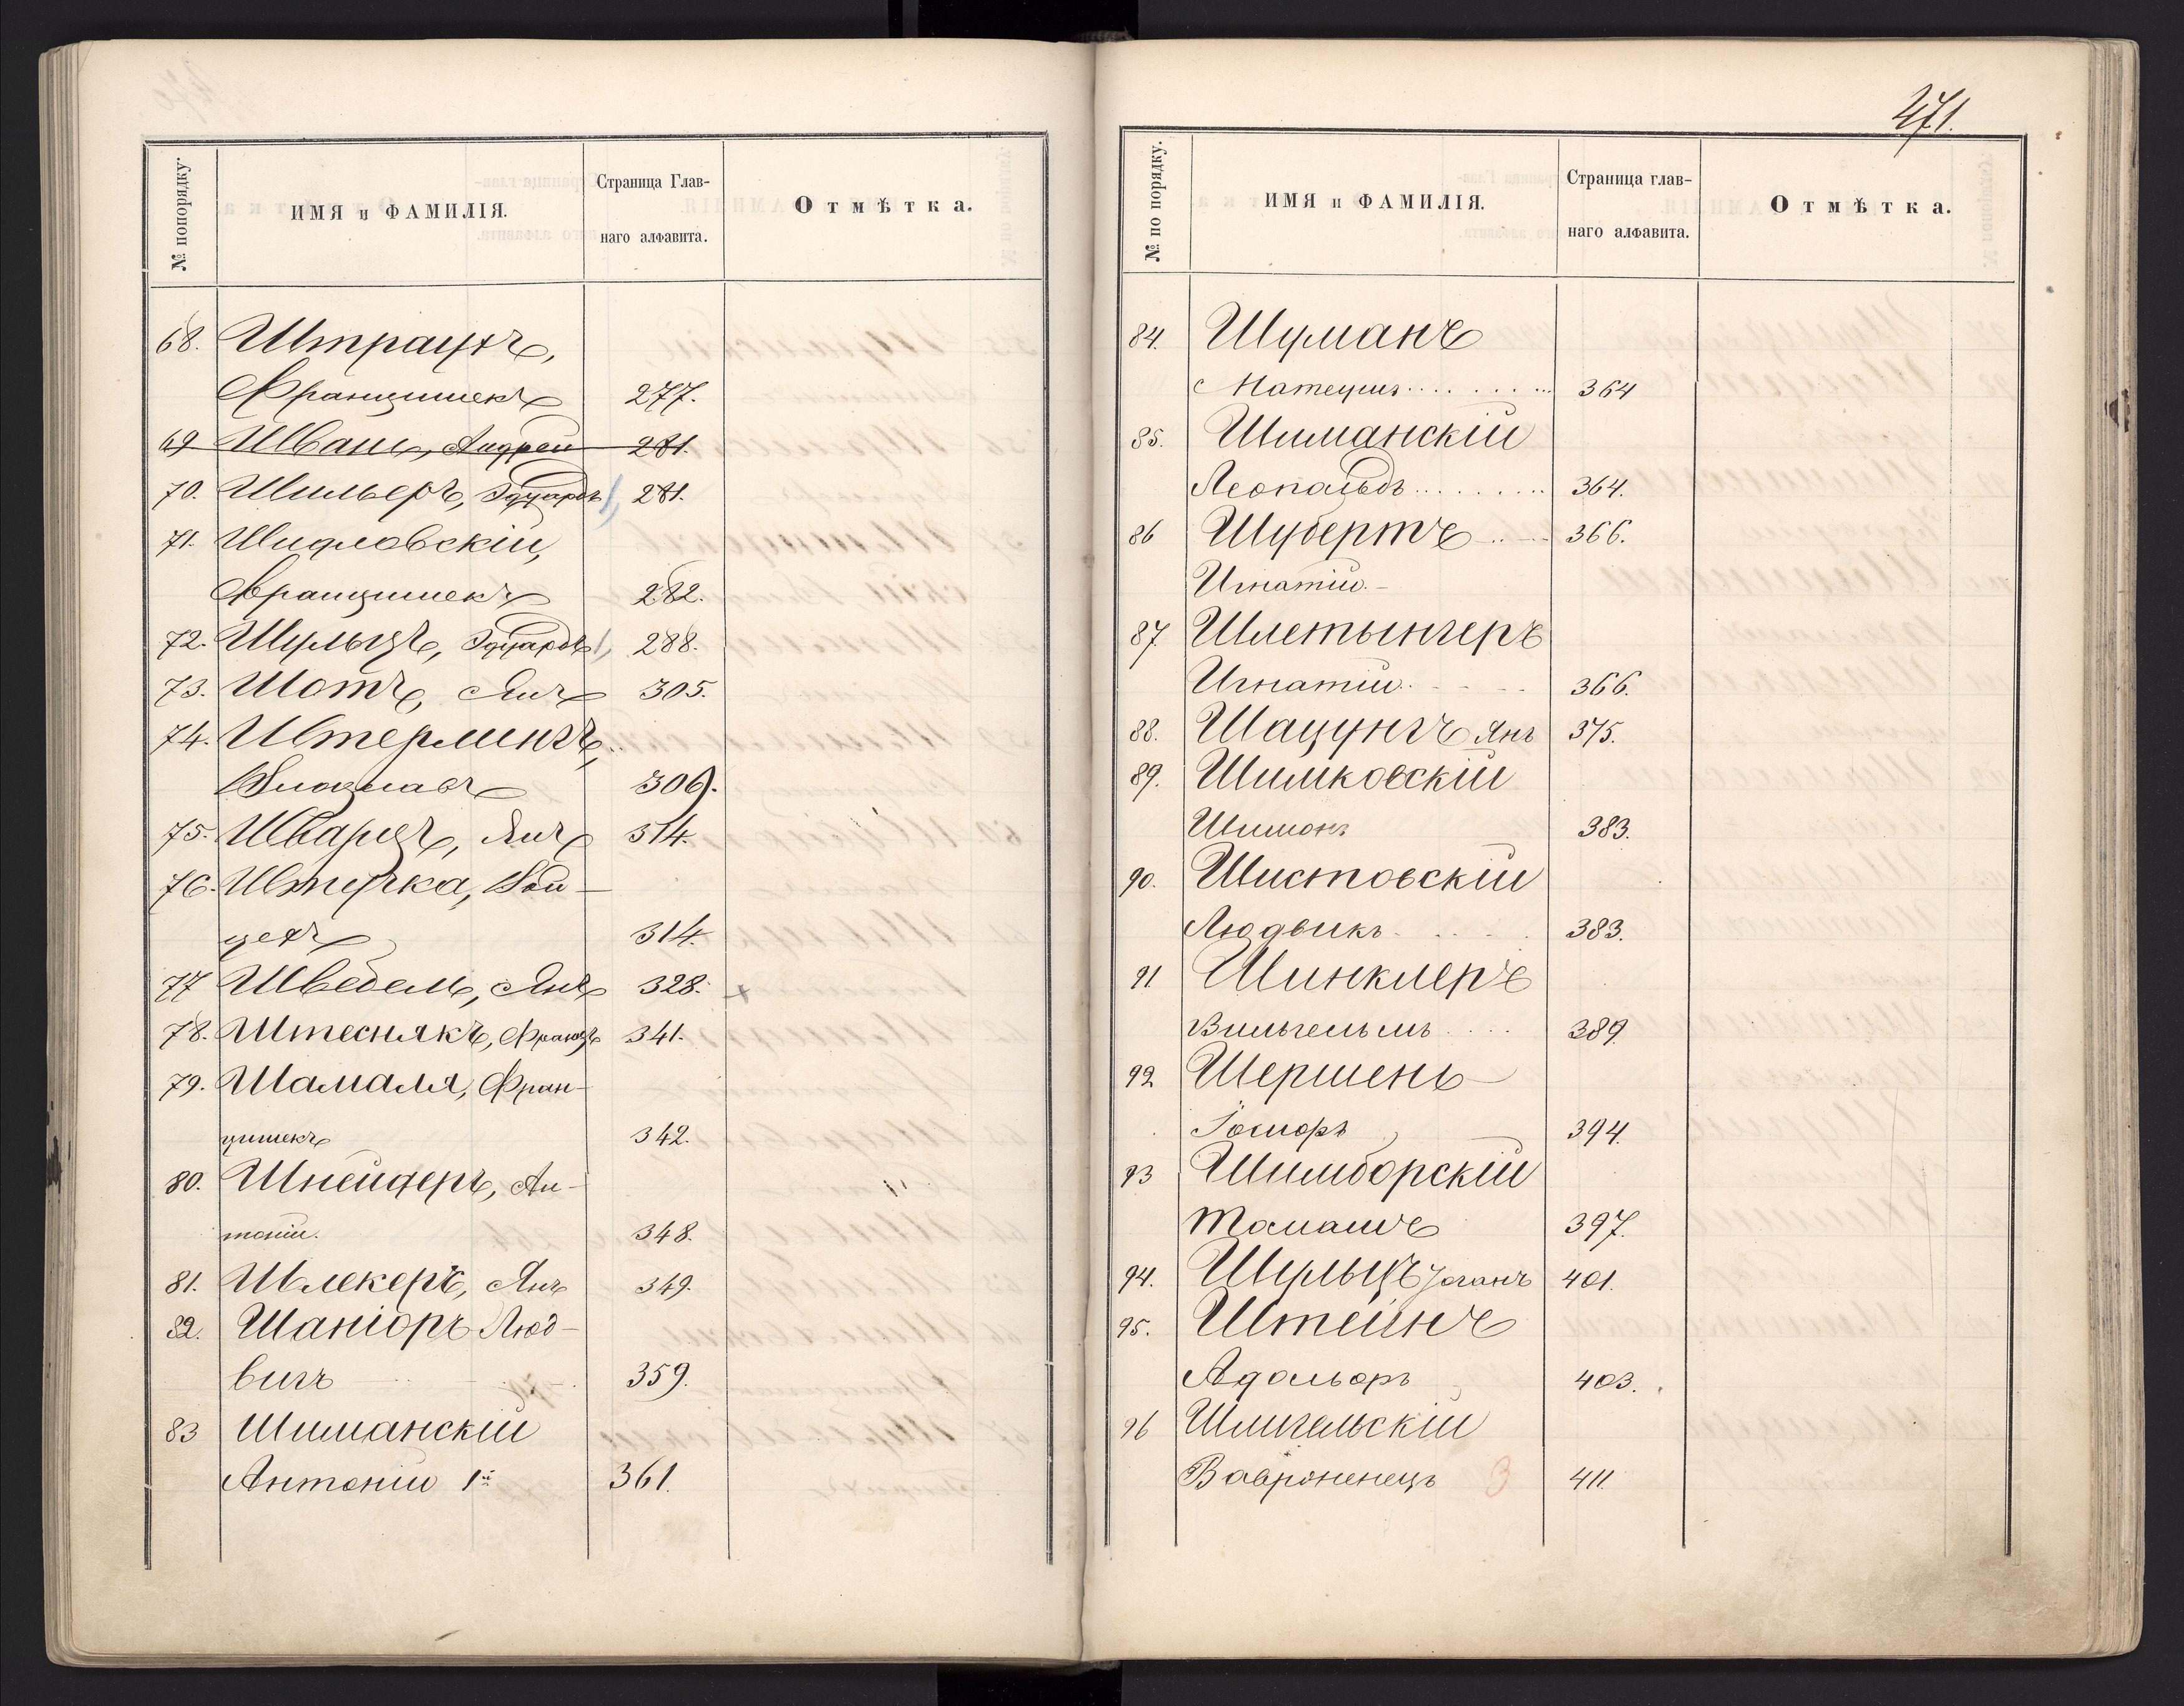 № попорядку.
ИМЯ и ФАМИЛІЯ.
Страница Глав-
наго алфавита.
Отмѣтка.
68. Штраухъ,
Францишекъ 277.
69 Швань, Андрей 281.
70. Шильеръ, Эдуардъ 281.
71. Шидловскій,
Францишекъ 282.
72. Шульцъ, Эдуардъ 288.
73. Шотъ, Янъ 305.
74. Штерлингъ,
Влоцлавъ 306.
75. Шварцъ, Янъ 314.
76. Штучка, Вой-
цехъ 314.
77 Шведель, Янъ 328. x
78. Штеснякъ, Францъ 341.
79. Шамаля, Фран-
цишекъ 342.
80. Шнейдеръ, Ан-
тоній. 348.
81. Шлекеръ, Янъ 349.
82. Шаніоръ Люд-
вигъ 359.
83 Шиманскій
Антоній 1й 361.
471.
№ по порядку.
ИМЯ и ФАМИЛІЯ.
Страница глав-
наго алфавита.
Отмѣтка.
84. Шуманъ
Матеушъ 364
85. Шиманскій
Леопольдъ 364.
86 Шубертъ 366.
Игнатій.
87. Шлетынгеръ
Игнатій 366.
88. Шацунгъ Янъ 375.
89. Шимковскій
Шимонъ 383.
90. Шистовскій
Людвикъ 383.
91 Шинклеръ
Вильгельмъ 389
92 Шершень
Іосифъ 394.
93 Шимборскій
Томашъ 397.
94. Шульцъ Іоганъ 401.
95. Штейнъ
Адольфъ 403.
96 Шлигельскій
Вавроненецъ 3 411.